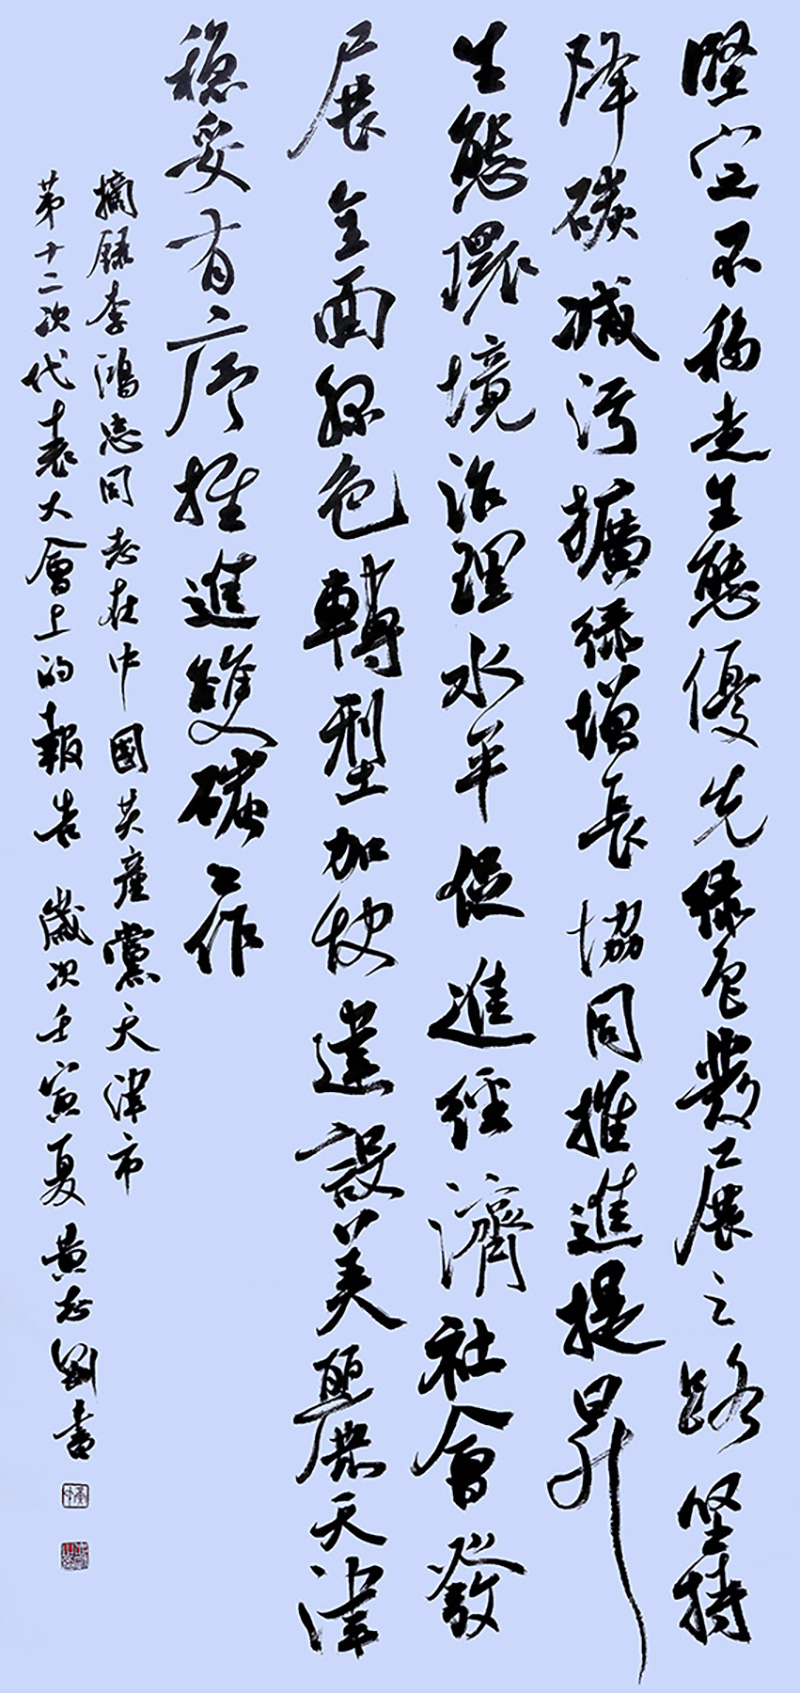 堅定不移走生態優先綠色發展之路堅持
降碳減污擴綠增長協同推進提昇
生態環境治理水平促進經濟社會發
展全面綠色轉型加快建設美麗天津
穩妥有序推進雙碳工作
摘錄李鴻忠同志在中國共產黨天津市
第十二次代表大會上的報告 歲次壬寅夏 黃志剛書